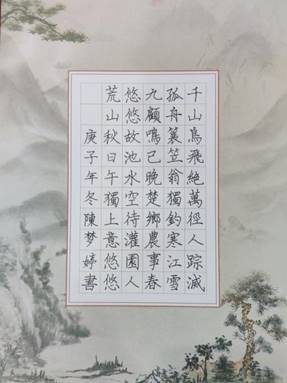 千山鳥飛絕萬徑人踪滅
孤舟簑笠翁獨釣寒江雪
九顧鳴已晚楚鄉農事春
悠悠故池水空待灌園人
荒山秋日午獨上意悠悠
庚子年冬陳梦婷書